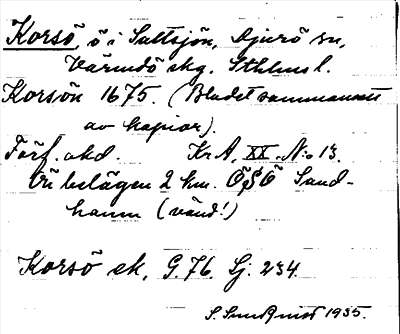 Korsö, ö i Saltsjön, Djurö sn,
Värmdö skg. Sthlms l.
Korsön 1675. (Bladet sammansatt
av kopior).
Förf. okd. Kr A, XX. N:o 13.
Ö belägen 2 km. ÖSÖ Sand-
hamn (vänd!)
Korsö ek, G.76. Lj. 234.
S. Sundquist 1935.